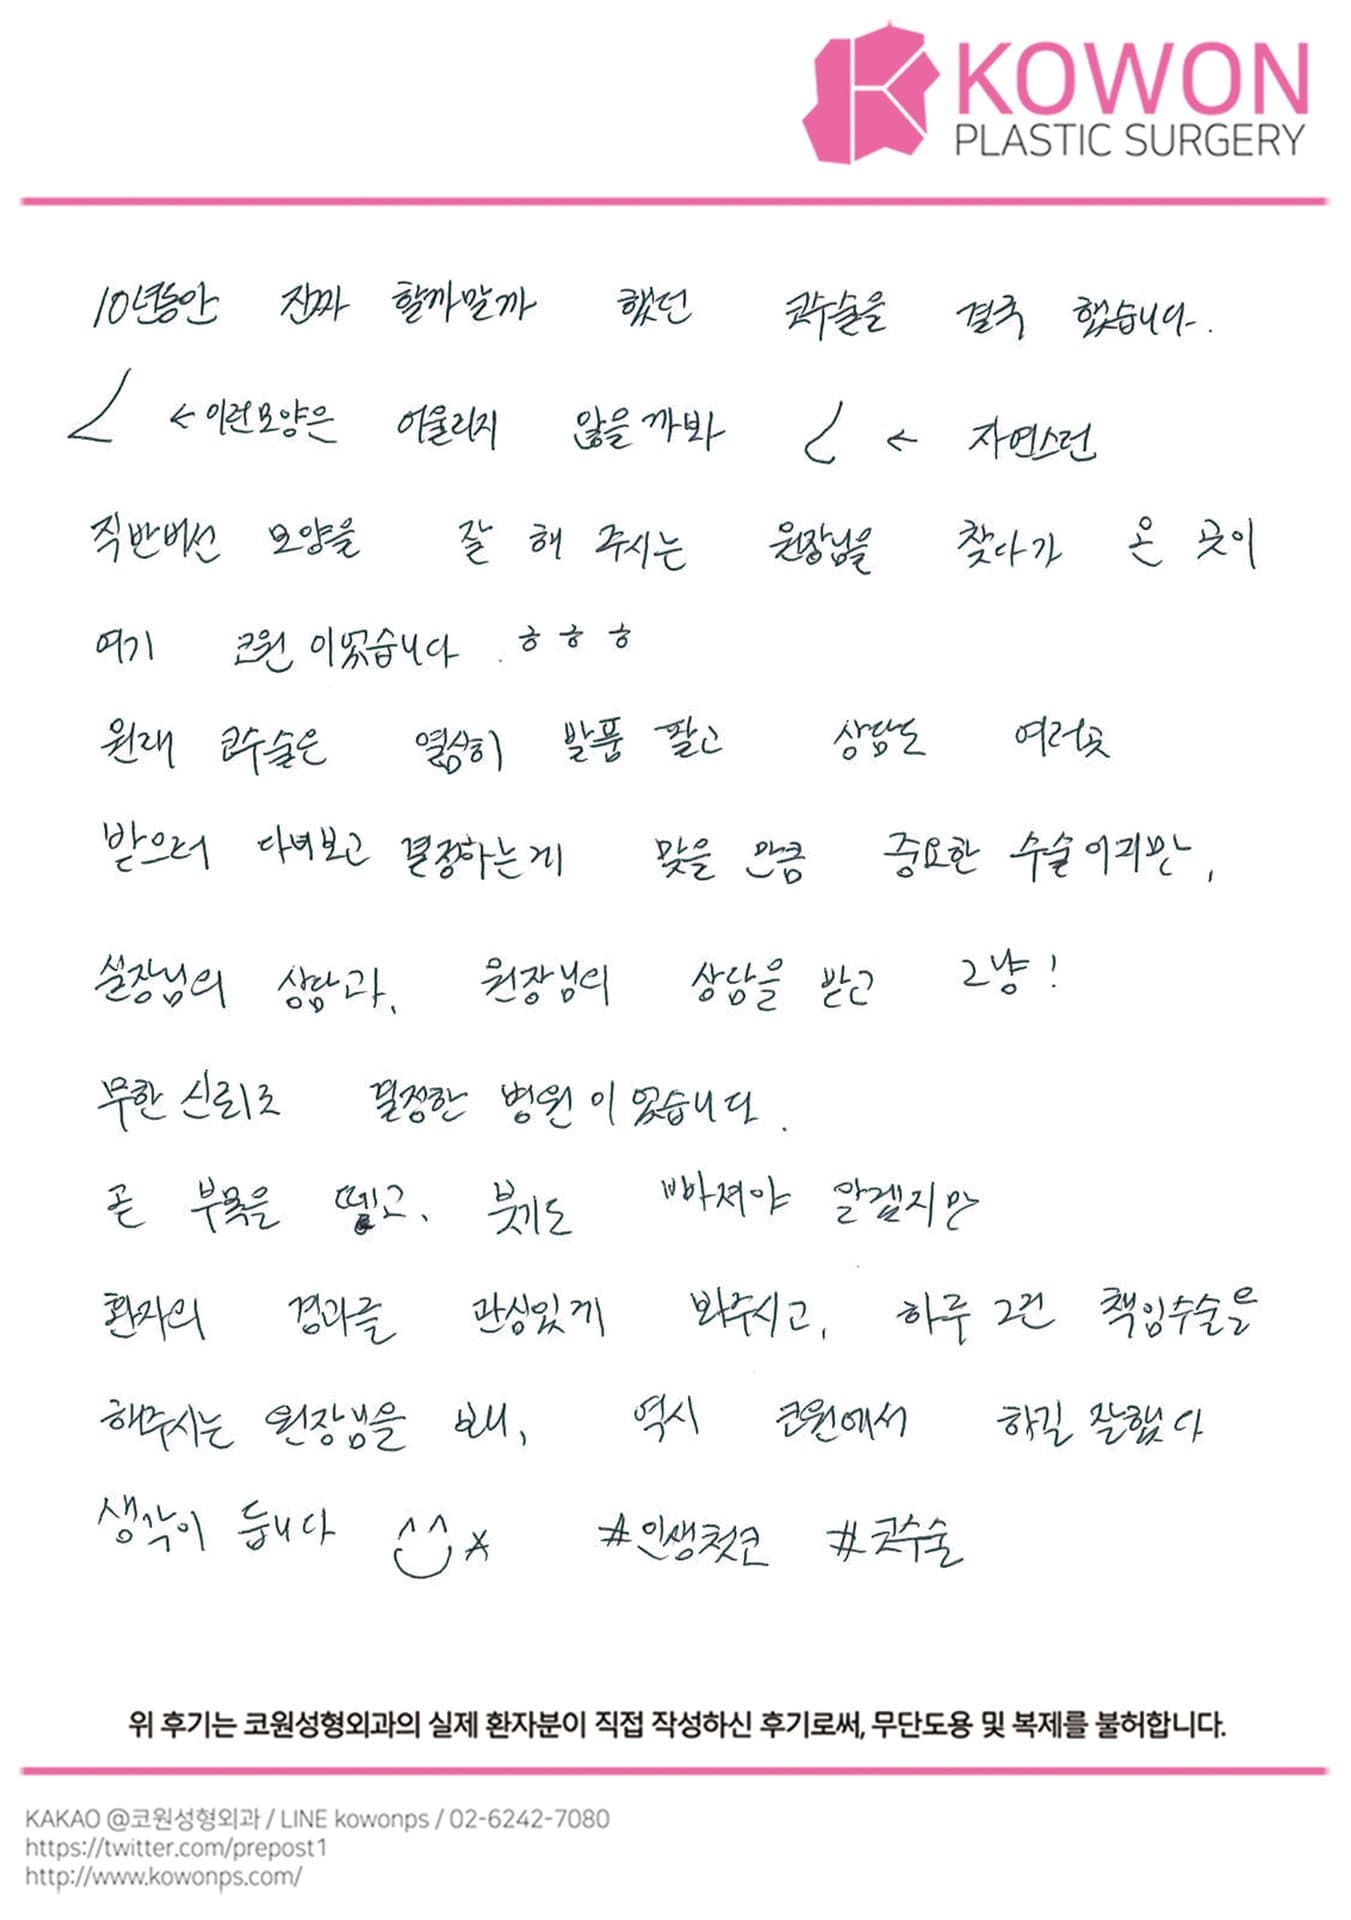 KOWON
PLASTIC SURGERY
10년동안 진짜 할까말까 했던 코수술을 결국 했습니다.
← 이런모양은 어울리지 않을까봐 ← 자연스런
직반버선 모양을 잘 해 주시는 원장님을 찾다가 온 곳이
여기 코원이었습니다. ㅎㅎㅎ
원래 코수술은 열심히 발품 팔고 상담도 여러곳
받으러 다녀보고 결정하는게 맞을 만큼 중요한 수술이지만,
실장님의 상담과, 원장님의 상담을 받고 그냥!
무한 신뢰로 결정한 병원이었습니다.
곧 부목을 떼고, 붓기도 빠져야 알겠지만
환자의 경과를 관심있게 봐주시고, 하루 2건 책임수술을
해주시는 원장님을 보니, 역시 코원에서 하길 잘했다
생각이 듭니다 ^^ #인생첫코 #코수술
위 후기는 코원성형외과의 실제 환자분이 직접 작성하신 후기로써, 무단도용 및 복제를 불허합니다.
KAKAO @코원성형외과 / LINE kowonps / 02-6242-7080
https://twitter.com/prepost1
http://www.kowonps.com/